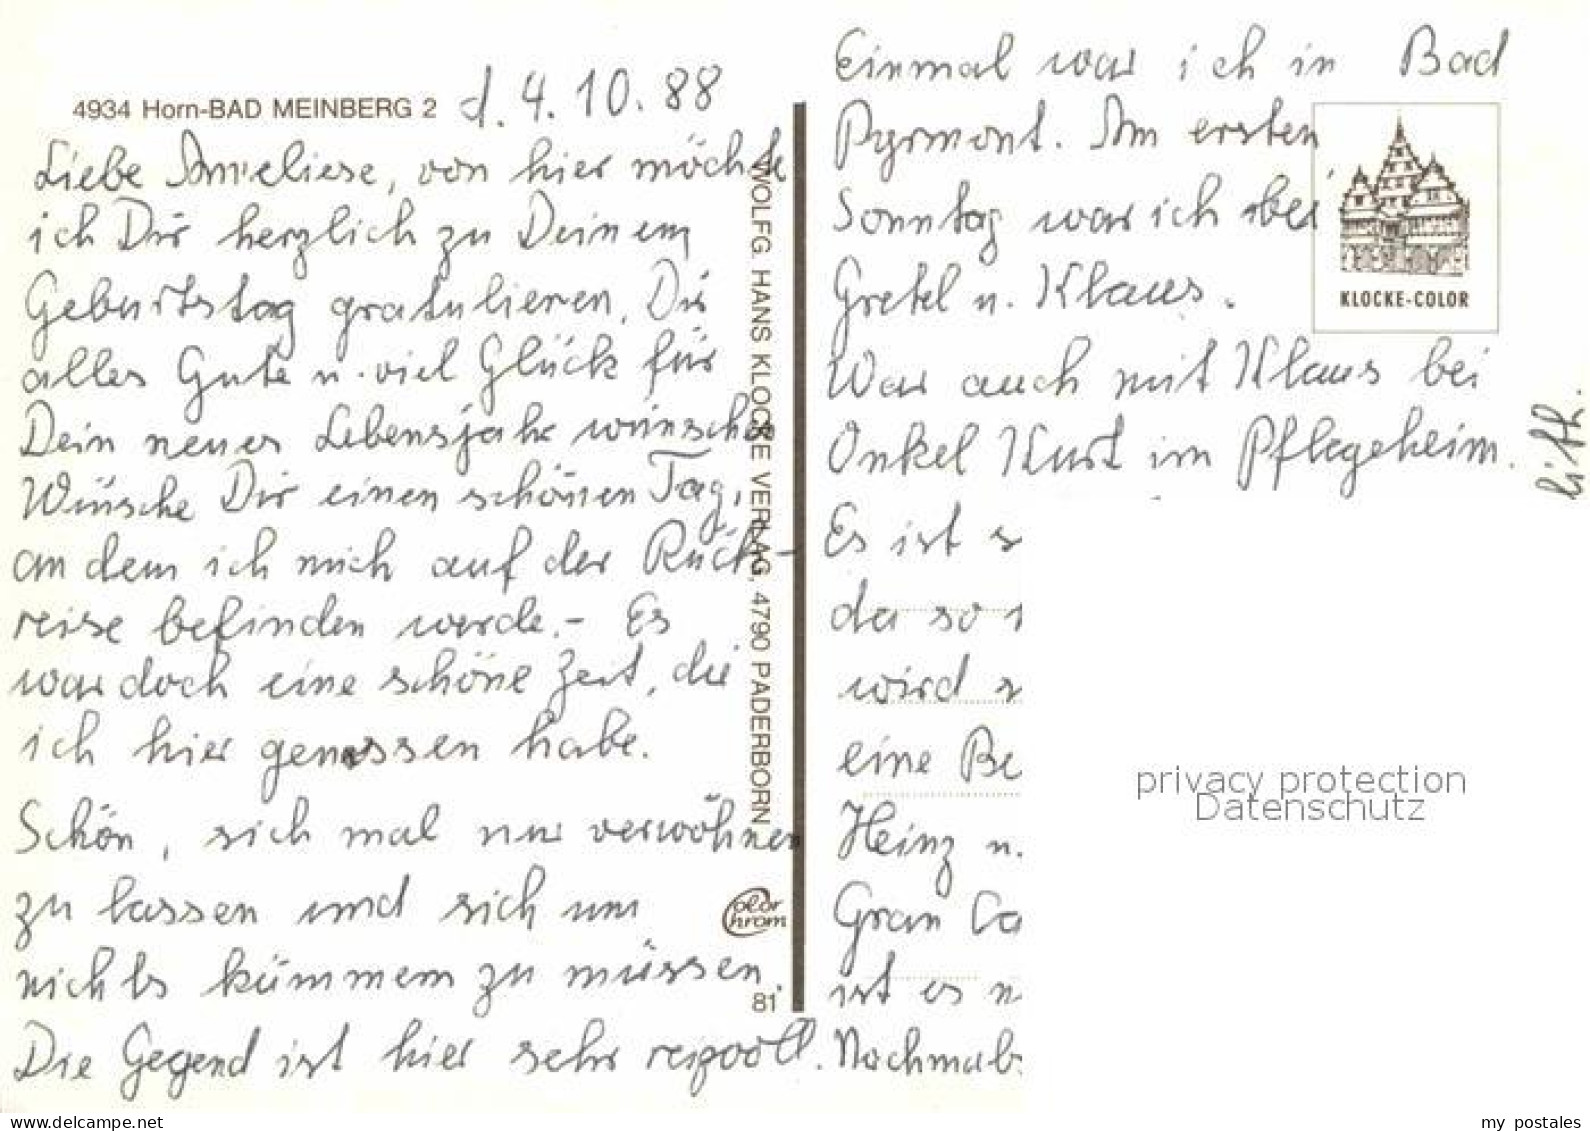 4934 Horn-BAD MEINBERG 2
d. 4. 10. 88
Liebe Anneliese, von hier möchte
ich Dir herzlich zu Deinem
Geburtstag gratulieren. Dir
alles Gute u. viel Glück für
Dein neues Lebensjahr wünschen
Wünsche Dir einen schönen Tag,
an dem ich mich auf der Rück-
reise befinden werde. - Es
war doch eine schöne Zeit, die
ich hier genossen habe.
Schön, sich mal nur verwöhnen
zu lassen und sich um
nichts kümmern zu müssen.
Die Gegend ist hier sehr reizvoll.
WOLFG. HANS KLOCKE VERLAG, 4790 PADERBORN
Color
Chrom
81
Einmal war ich in Bad
Pyrmont. Am ersten
Sonntag war ich bei
Gretel u. Klaus.
War auch mit Klaus bei
Onkel Kurt im Pflegeheim.
Es ist s
da so
wird
eine Be
Heinz u.
Gran Ca
ist es n
Nochmals
KLOCKE-COLOR
privacy protection
Datenschutz
my postales